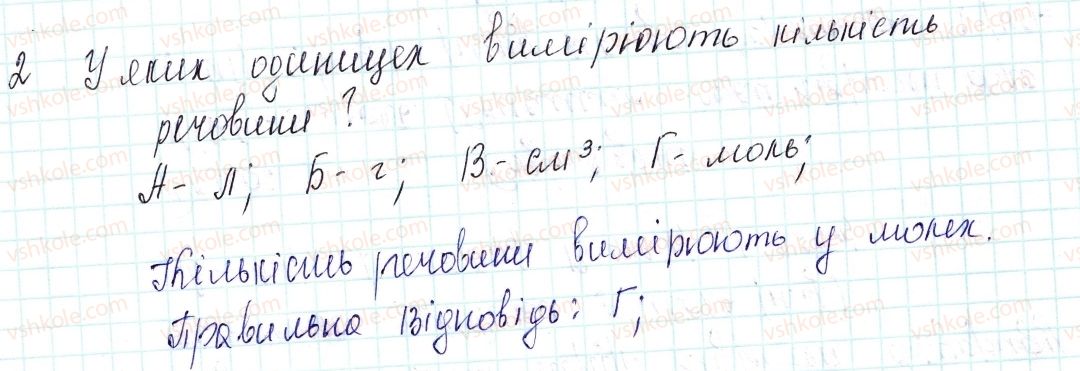 2 У яких одиницех вимірюють кількість
речовини?
А- л; Б- г; В- см³; Г- моль;
Кількість речовини вимірюють у молех.
Правильна відповідь: Г;